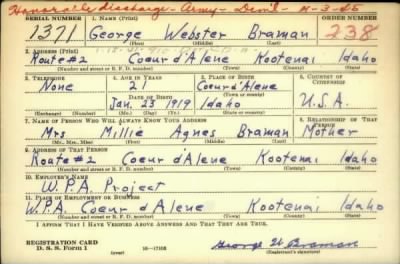 Honorably discharge - Army - Demil - 11-3-45
SERIAL NUMBER 1. NAME (Print) ORDER NUMBER
1371 George Webster Braman 238
(First) (Middle) (Last)
2. ADDRESS (Print)
Route #2 Coeur d'Alene Kootenai Idaho
(Number and street or R. F. D. number) (Town) (County) (State)
3. TELEPHONE 4. AGE IN YEARS 5. PLACE OF BIRTH 6. COUNTRY OF CITIZENSHIP
None 21 Coeur d'Alene
DATE OF BIRTH (Town or county)
Jan. 23 1919 Idaho U.S.A.
(Exchange) (Number) (Mo.) (Day) (Yr.) (State or country)
7. NAME OF PERSON WHO WILL ALWAYS KNOW YOUR ADDRESS 8. RELATIONSHIP OF THAT PERSON
Mrs Millie Agnes Braman Mother
(Mr., Mrs., Miss) (First) (Middle) (Last)
9. ADDRESS OF THAT PERSON
Route #2 Coeur d'Alene Kootenai Idaho
(Number and street or R. F. D. number) (Town) (County) (State)
10. EMPLOYER'S NAME
W.P.A. Project
11. PLACE OF EMPLOYMENT OR BUSINESS
W.P.A. Coeur d'Alene Kootenai Idaho
(Number and street or R. F. D. number) (Town) (County) (State)
I AFFIRM THAT I HAVE VERIFIED ABOVE ANSWERS AND THAT THEY ARE TRUE.
REGISTRATION CARD
D. S. S. Form 1 (over) 16-17105 George W Braman
(Registrant's signature)